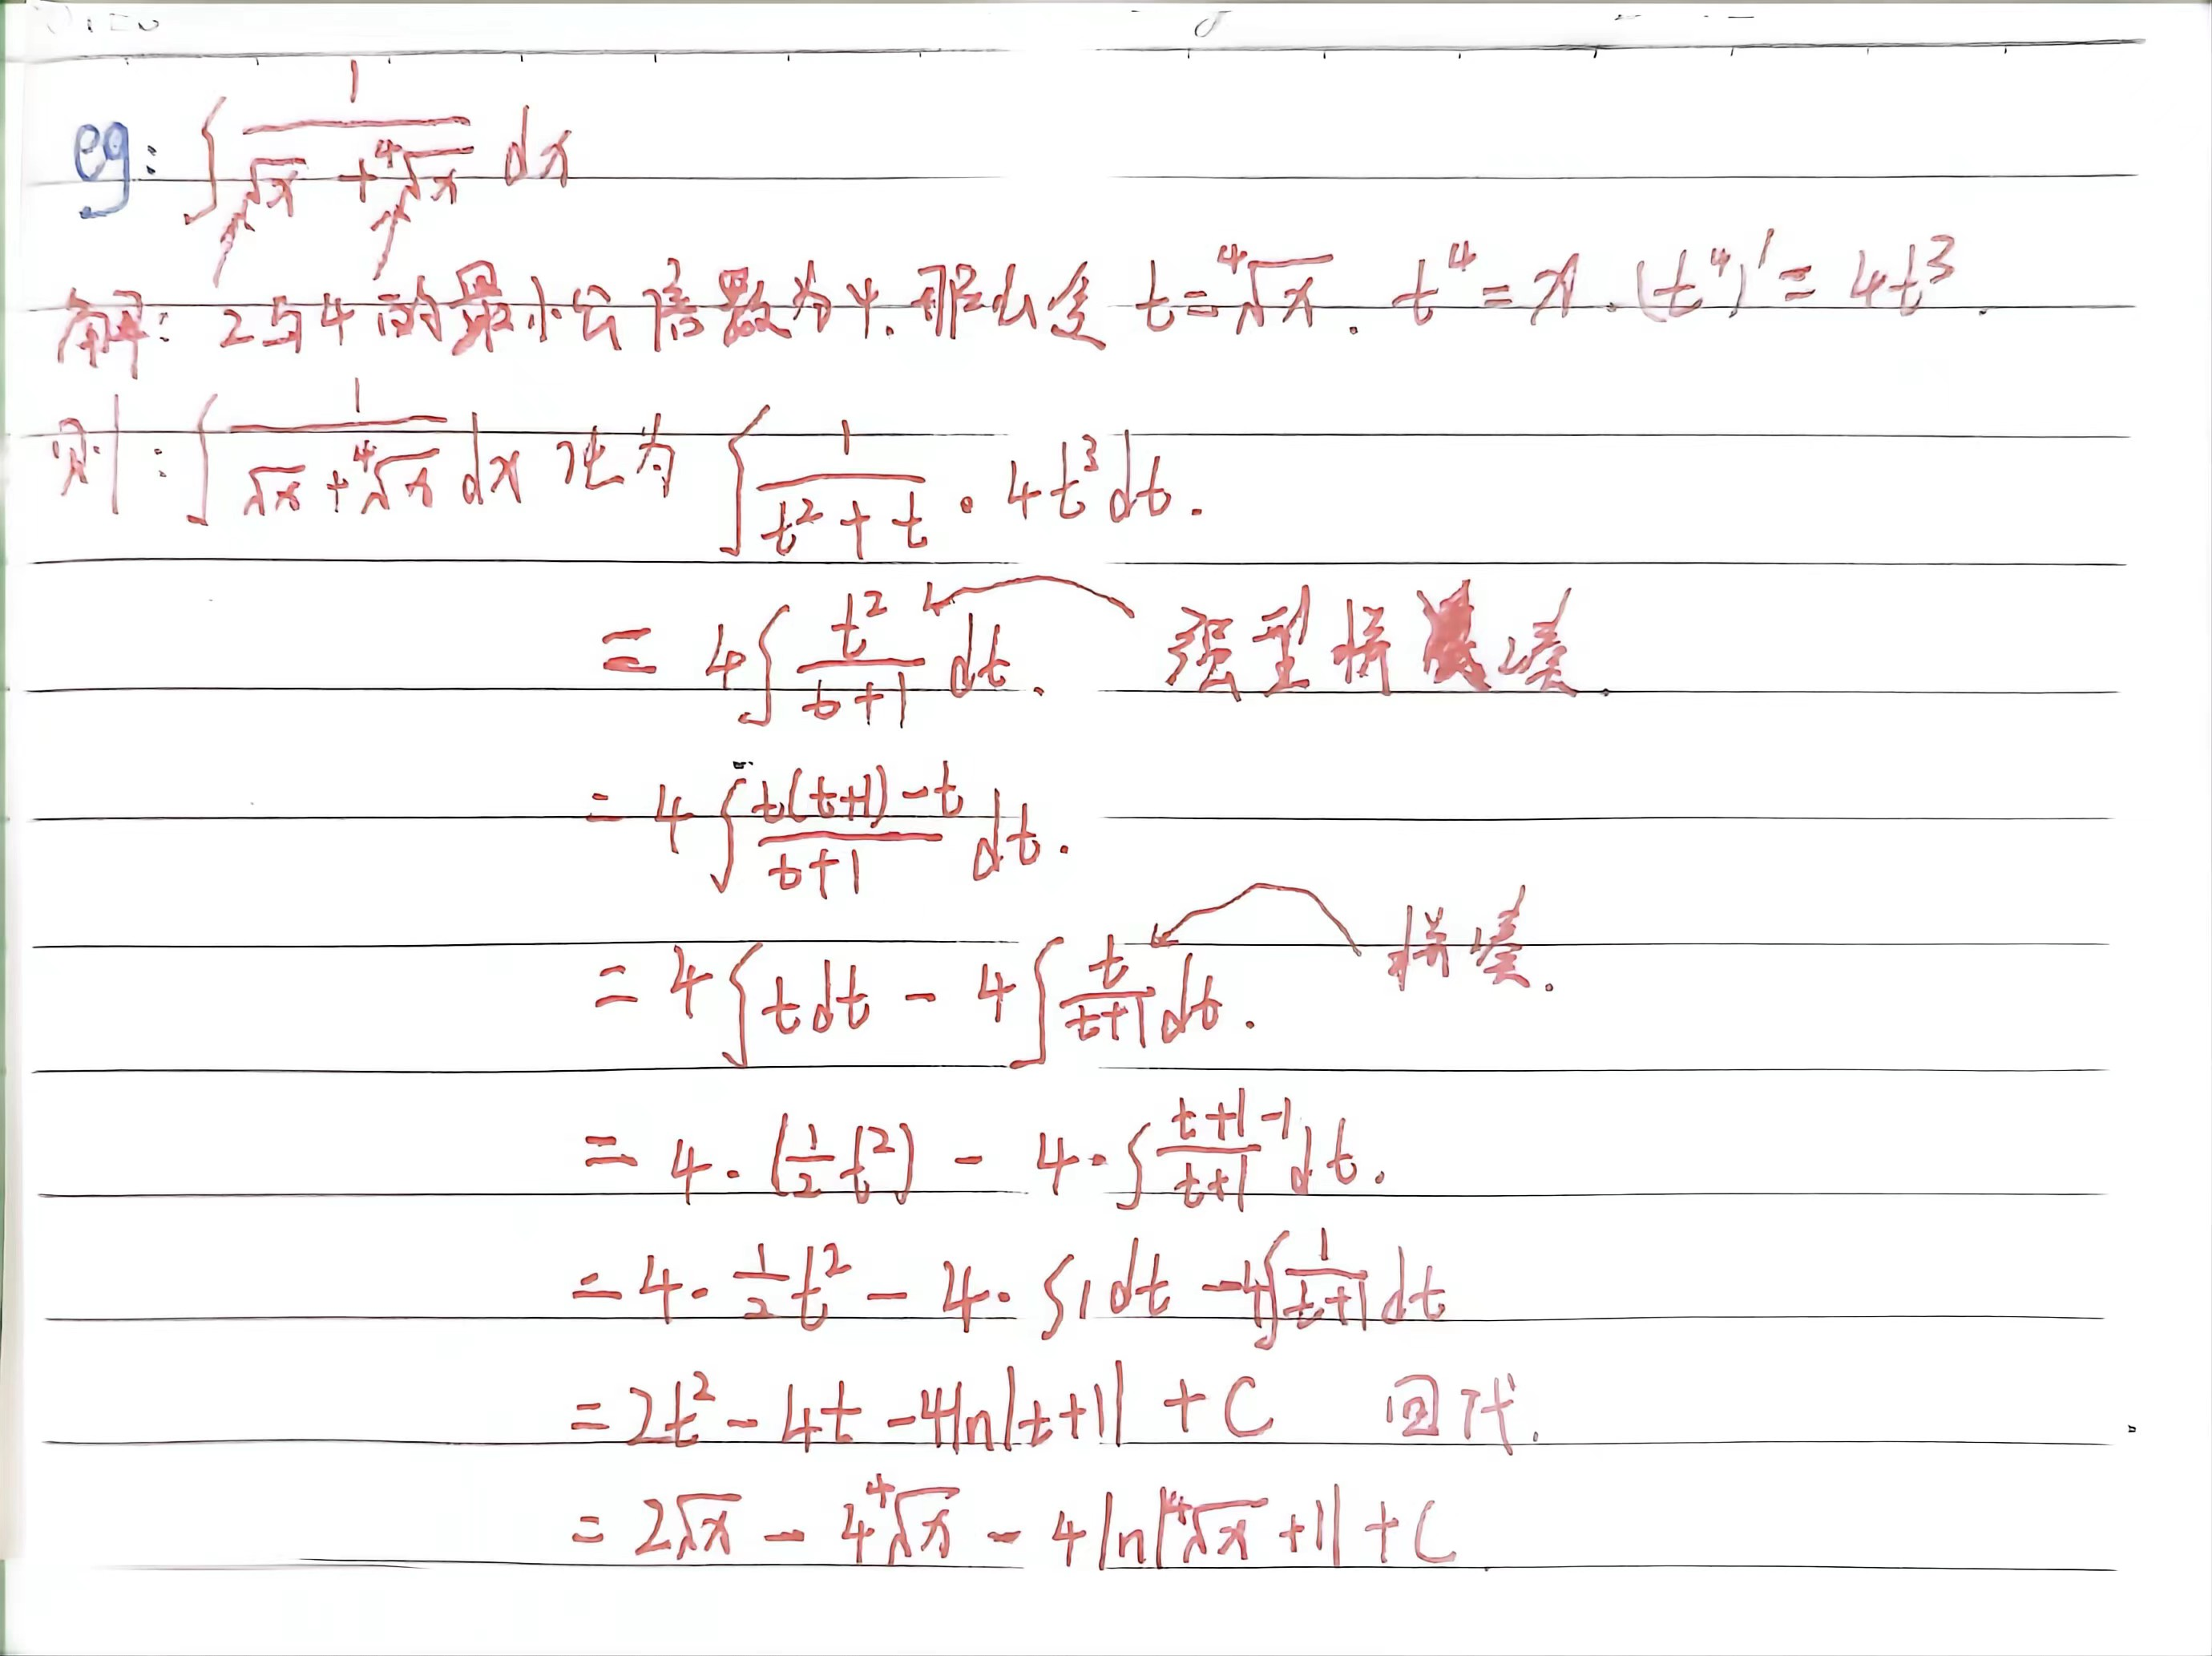 eg: ∫ 1/(√x + ⁴√x) dx
解: 2与4的最小公倍数为4.那么令 t = ⁴√x. t⁴ = x. (t⁴)' = 4t³.
则: ∫ 1/(√x + ⁴√x) dx 化为 ∫ 1/(t² + t) · 4t³dt.
= 4∫ t²/(t+1) dt. 强型拼凑.
= 4∫ (t(t+1) - t)/(t+1) dt.
= 4∫tdt - 4∫ t/(t+1) dt. 拼凑.
= 4 · (1/2 t²) - 4 · ∫ (t+1-1)/(t+1) dt.
= 4 · 1/2 t² - 4 · ∫1dt - 4∫ 1/(t+1) dt
= 2t² - 4t - 4ln|t+1| + C 回代.
= 2√x - 4⁴√x - 4ln|⁴√x + 1| + C